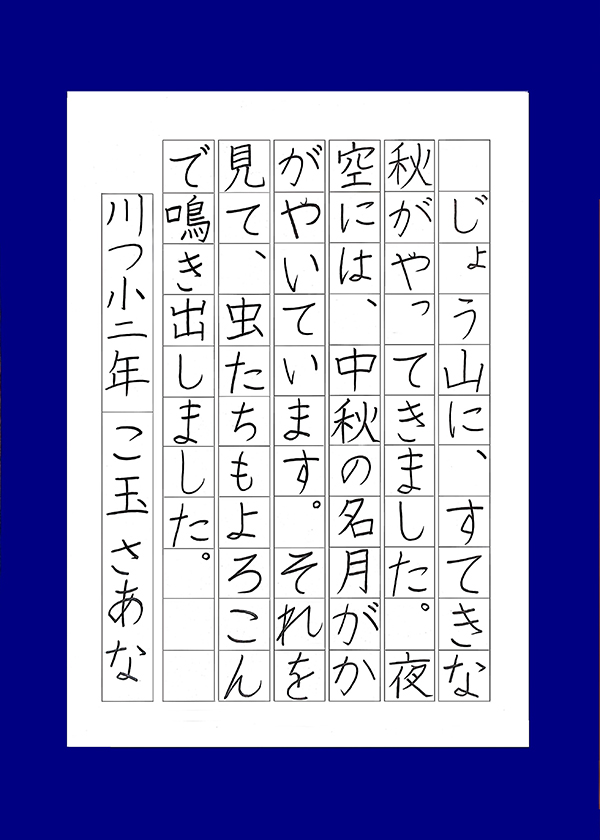 じょう山に、すてきな
秋がやってきました。夜
空には、中秋の名月がか
がやいています。それを
見て、虫たちもよろこん
で鳴き出しました。
川つ小二年 こ玉さあな